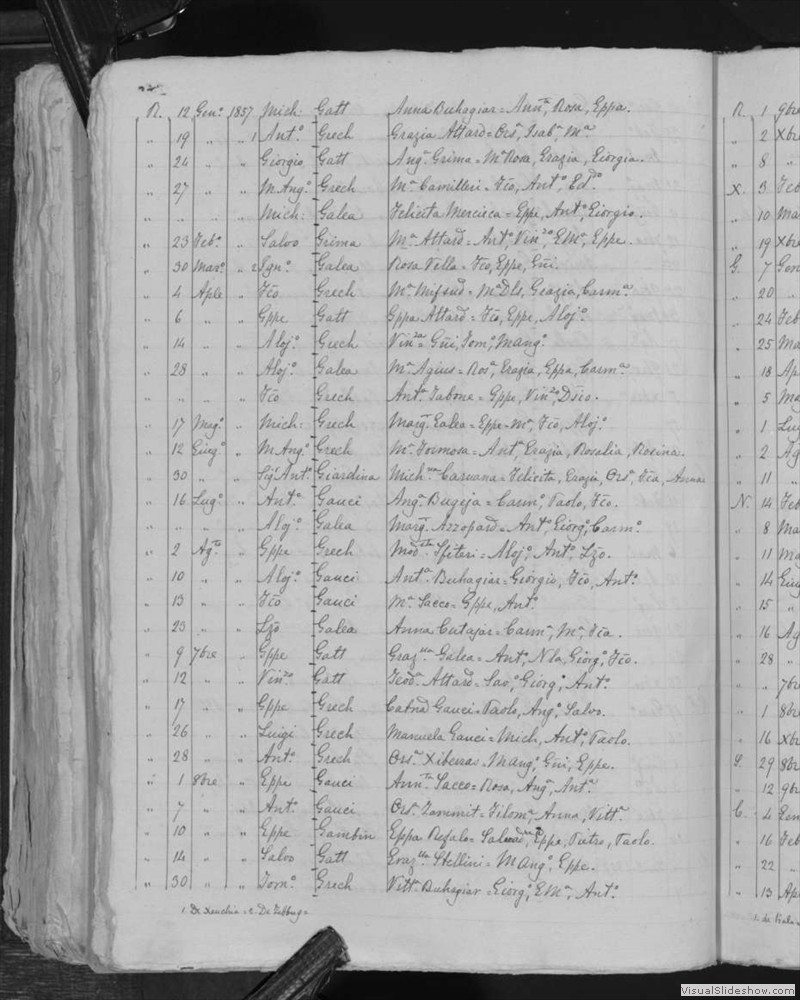 R. 12 Gen.º 1857 Mich: Gatt Anna Buhagiar = Ann.ª, Rosa, Eppa.
„ 19 „ „ 1 Ant.º Grech Grazia Attard = Ors.ª, Isab.ª M.ª
„ 24 „ „ Giorgio Gatt Ang.ª Grima = M.ª Rosa, Grazia, Giorgia.
„ 27 „ „ M. Ang.º Grech M.ª Camilleri = Fc̄o, Ant.º, Ed.do
„ „ „ „ Mich: Galea Felicita Mercieca = Eppe, Ant.º, Giorgio.
„ 23 Feb.º „ Salvo Grima M.ª Attard = Ant.º, Vin.zo, EM.ª, Eppe.
„ 30 Mar.º „ 2 Ign.º Galea Rosa Vella = Fc̄o, Eppe, Gūi.
„ 4 Aple „ Fc̄o Grech M.ª Mifsud = M.ª Dls, Grazia, Carm.ª
„ 6 „ „ Gppe Gatt Gppa Attard = Fc̄o, Eppe, Aloj.º
„ 14 „ „ Aloj.º Grech Vin.za = Gūi, Tom.º, M Ang.º
„ 28 „ „ Aloj.º Galea M.ª Agius = Ros.ª, Grazia, Eppa, Carm.ª
„ „ „ „ Fc̄o Grech Ant.ª Tabone = Gppe, Vin.zo,
„ 17 Mag.º „ Mich: Grech Marg.ª Galea = Eppe = M.ª, Fc̄o, Aloj.º
„ 12 Giug.º „ M. Ang.º Grech M.ª Formosa = Ant.ª, Grazia, Rosalia, Rosina.
„ 30 „ „ Sig.r Ant.º Giardina Mich.na Caruana = Felicita, Grazia, Ors.ª, Fc̄a, Anna
„ 16 Lug.º „ Ant.º Gauci Ang.ª Bugeja = Carm.º, Paolo, Fc̄o.
„ „ „ „ Aloj.º Galea Marg.ª Azzopard = Ant.º, Giorg.º, Carm.º
„ 2 Ag.to „ Gppe Grech Mod.ta Spiteri = Aloj.º, Ant.º, Lzō.
„ 10 „ „ Aloj.º Gauci Ant.ª Buhagiar = Giorgio, Fc̄o, Ant.º
„ 13 „ „ Fc̄o Gauci M.ª Sacco = Gppe, Ant.º
„ 23 „ „ Lzō Galea Anna Cutajar = Carm.ª, M.ª, Fc̄a.
„ 9 7bre „ Gppe Gatt Graz.lla Galea = Ant.º, Nla, Giorg.º, Fc̄o.
„ 12 „ „ Vin.zo Gatt Teod.ª Attard = Sav.º, Giorg.º, Ant.º
„ 17 „ „ Eppe Grech Catnā Gauci = Paolo, Ang.º, Salvo.
„ 26 „ „ Luigi Grech Manuela Gauci = Mich, Ant.º, Paolo.
„ 28 „ „ Ant.º Grech Ors.ª Xiberas = M Ang.º, Gūi, Eppe.
„ 1 8bre „ Eppe Gauci Ann.ta Sacco = Rosa, Ang.ª, Ant.ª
„ 7 „ „ Ant.º Gauci Ors.ª Zammit = Filom.ª, Anna, Vitt.ª
„ 10 „ „ Eppe Gambin Eppa Refalo = Eppe, Pietro, Paolo.
„ 14 „ „ Salvo Gatt Graz.lla Stellini = M Ang.º, Eppe.
„ 30 „ „ Tom.º Grech Vitt.ª Buhagiar = Giorg.º, EM.ª, Ant.º
1. De Xeuchia = 2. De Zebbug =
R. 1 9bre
„ 2 Xbre
„ 8 „
X. 3 Feb
„ 10 Ma
„ 19 Xbre
G. 7 Gen
„ 20 „
„ 24 Feb
„ 25 Ma
„ 18 Ap
„ 5 Ma
„ 1 Lug
„ 2 Ag
„ 11 „
N. 14 Feb
„ 8 Ma
„ 11 Ma
„ 14 Giug
„ 15 „
„ 16 Ag
„ 28 „
„ „ 7bre
„ 1 8bre
„ 16 Xbr
S. 29 8bre
„ 12 9bre
C. 4 Gen
„ 16 Feb
„ 22 „
„ 13 Ap
VisualSlideshow.com